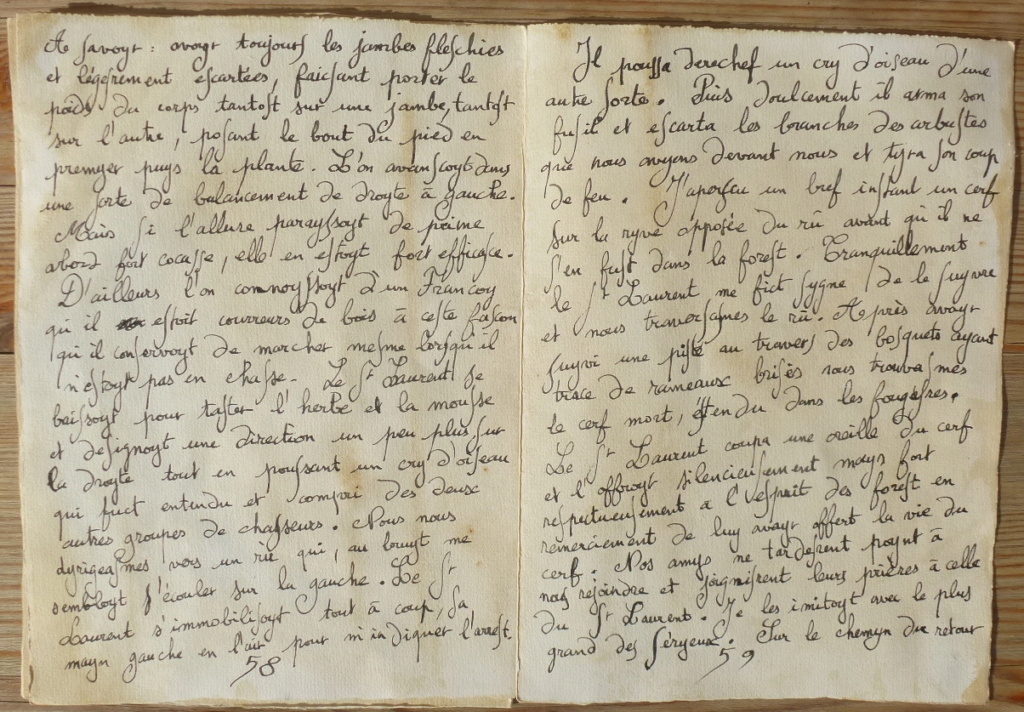 A savoyr : avoyr toujours les jambes fleschies
et légèrement escartées, faisant porter le
poids du corps tantost sur une jambe, tantost
sur l'autre, posant le bout du pied en
premyer puys la plante. L'on avansçoyt dans
une sorte de balancement de droyte à gauche.
Mais si l'allure parayssoyt de prime
abord fort cocasse, elle en estoyt fort efficasse.
D'ailleurs l'on connoyssoyt d'un Françoy
qui il estoit courreurs de bois à ceste fasçon
qui il conservoyt de marcher mesme lorsqu'il
n'estoyt pas en chasse. Le St Laurent se
baissoyt pour taster l'herbe et la mousse
et designoyt une direction un peu plus sur
la droyte tout en poussant un cry d'oiseau
qui fuct entendu et compri des deux
autres groupes de chasseurs. Nous nous
dyrigeasmes vers un rû qui, au bruyt me
sembloyt s'écouler sur la gauche. Le St
Laurent s'immobilisoyt tout à coup, sa
mayn gauche en l'air pour m'indiquer l'arrest.
58
Il poussa derechef un cry d'oiseau d'une
autre sorte. Puis doulcement il arma son
fusil et escarta les branches des arbustes
que nous avyons devant nous et tyra son coup
de feu. J'aperçeu un bref instant un cerf
sur la ryve opposée du rû avant qu'il ne
s'en fust dans la forest. Tranquillement
le St Laurent me fict sygne de le suyvre
et nous traversasmes le rû. Après avoyr
suyvi une piste au travers des bosquets ayant
trace de rameaux brisés nous trouvasmes
le cerf mort, étendu dans les fougesres.
Le St Laurent coupa une oreille du cerf
et l'offroyt silencieusement mays fort
respectueusement à l'esprit des forest en
remerciement de luy avoyr offert la vie du
cerf. Nos amys ne tardesrent poynt à
nous rejoindre et joignisrent leurs prières à celle
du St Laurent. Je les imitoyt avec le plus
grand des séryeux. Sur le chemyn du retour
59